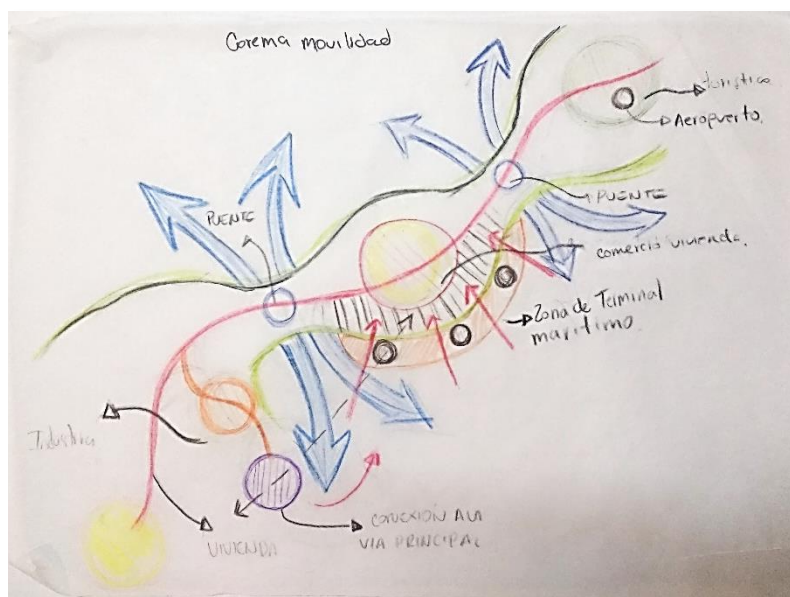 Corema movilidad
turistico
Aeropuerto.
PUENTE
PUENTE
comercio vivienda.
Zona de Terminal
maritimo.
Industria
VIVIENDA
CONEXIÓN A LA
VIA PRINCIPAL